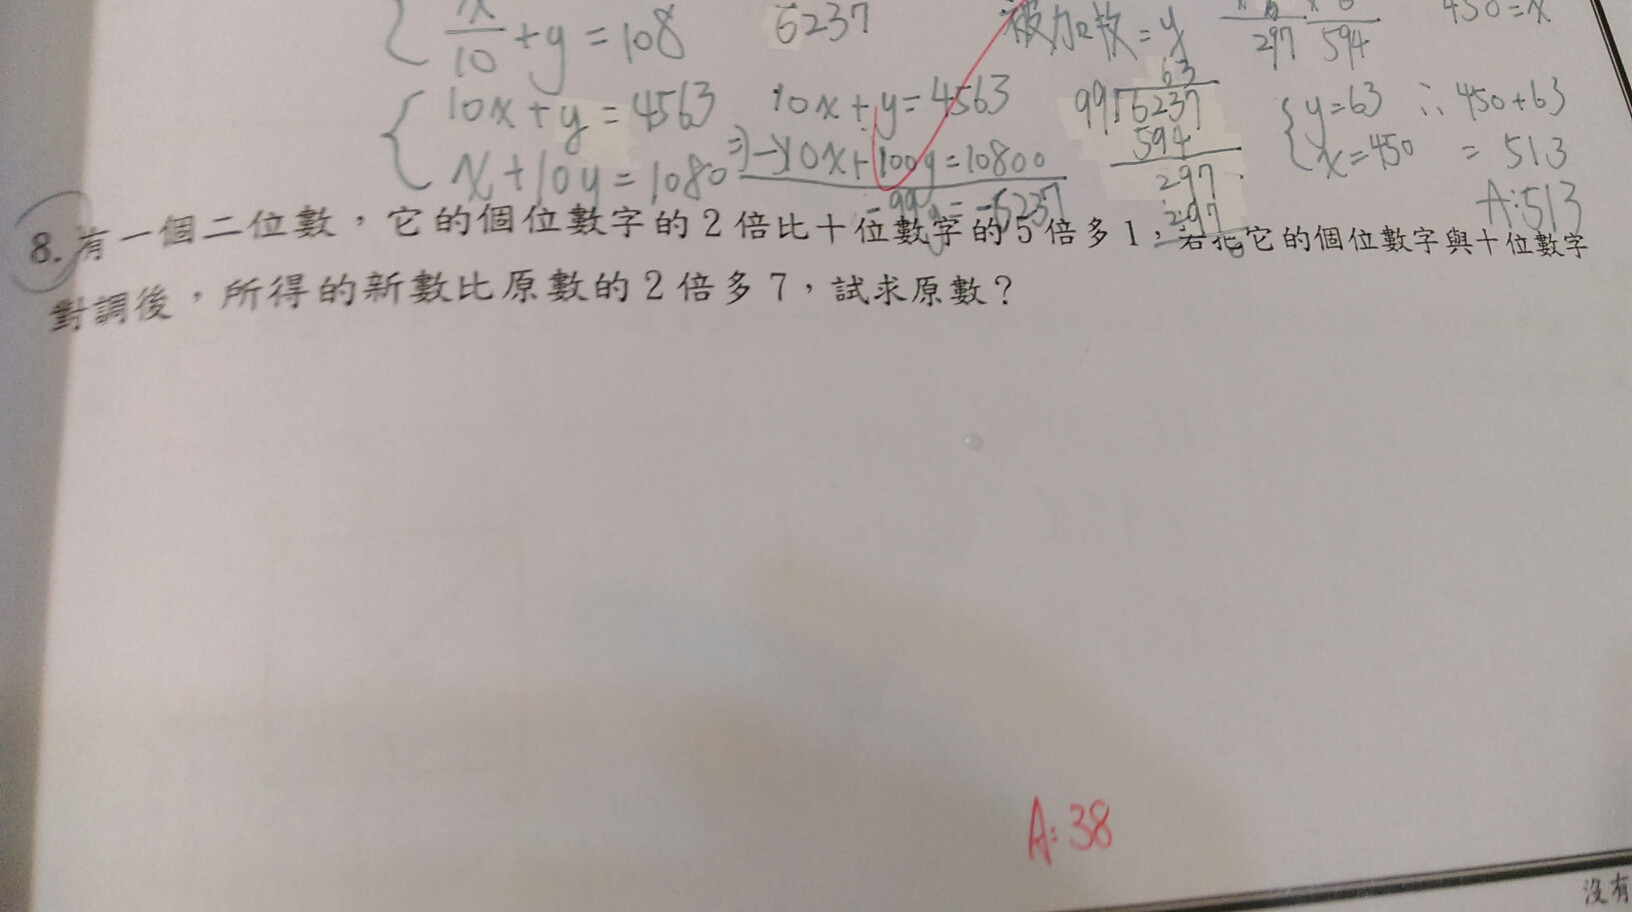 x/10 + y = 108
6237
被加數 = y
297 594
450 = x
10x + y = 4563
x + 10y = 1080
⇒
10x + y = 4563
-) 10x + 100y = 10800
-99y = -6237
63
99 6237
594
297
297
0
y = 63
x = 450
∴ 450 + 63
= 513
A: 513
8. 有一個二位數，它的個位數字的2倍比十位數字的5倍多1，若把它的個位數字與十位數字
對調後，所得的新數比原數的2倍多7，試求原數？
A: 38
沒有